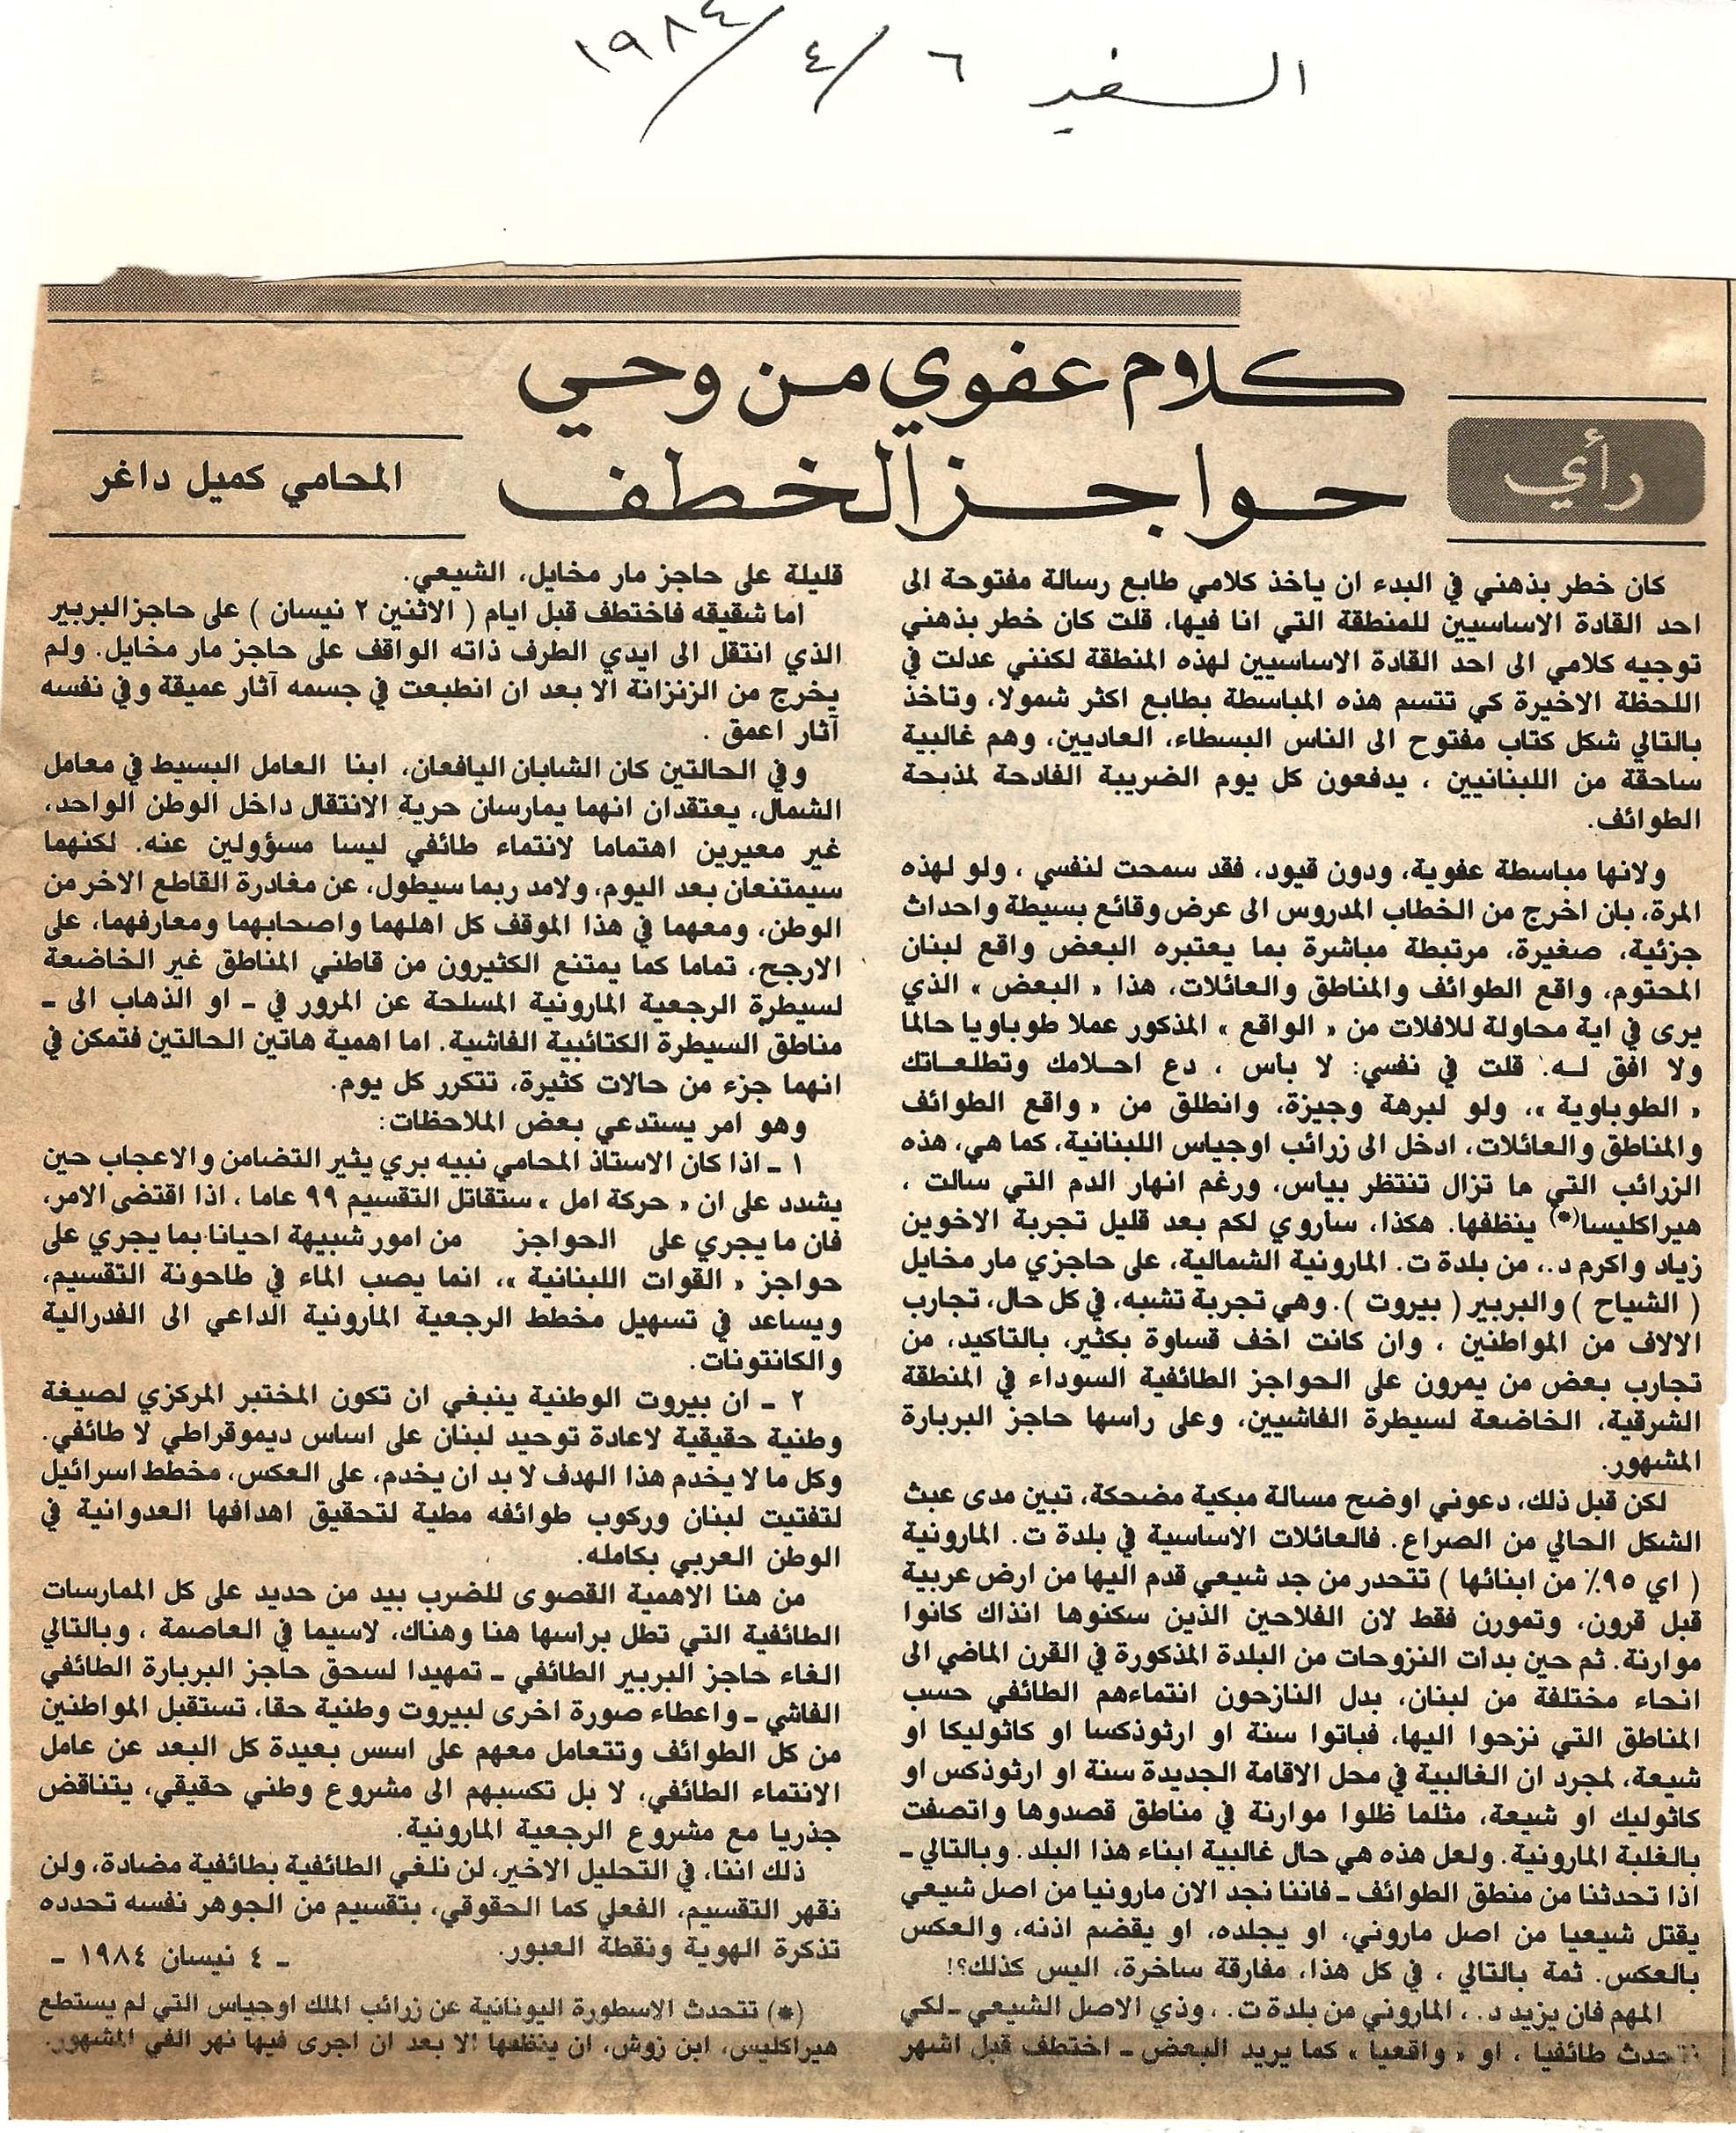 السفير ٦/٤/١٩٨٤
رأي
كلام عفوي من وحي
حواجز الخطف
المحامي كميل داغر
كان خطر بذهني في البدء ان يأخذ كلامي طابع رسالة مفتوحة الى
احد القادة الاساسيين للمنطقة التي انا فيها، قلت كان خطر بذهني
توجيه كلامي الى احد القادة الاساسيين لهذه المنطقة لكنني عدلت في
اللحظة الاخيرة كي تتسم هذه المباسطة بطابع اكثر شمولا، وتاخذ
بالتالي شكل كتاب مفتوح الى الناس البسطاء، العاديين، وهم غالبية
ساحقة من اللبنانيين ، يدفعون كل يوم الضريبة الفادحة لمذبحة
الطوائف.
ولانها مباسطة عفوية، ودون قيود، فقد سمحت لنفسي ، ولو لهذه
المرة، بان اخرج من الخطاب المدروس الى عرض وقائع بسيطة واحداث
جزئية، صغيرة، مرتبطة مباشرة بما يعتبره البعض واقع لبنان
المحتوم، واقع الطوائف والمناطق والعائلات، هذا « البعض » الذي
يرى في اية محاولة للافلات من « الواقع » المذكور عملا طوباويا حالما
ولا افق لـه. قلت في نفسي: لا باس ، دع احـلامك وتطلعـاتك
« الطوباوية »، ولو لبرهة وجيزة، وانطلق من « واقع الطوائف
والمناطق والعائلات، ادخل الى زرائب اوجياس اللبنانية، كما هي، هذه
الزرائب التي ما تزال تنتظر بياس، ورغم انهار الدم التي سالت ،
هيراكليسا(*) ينظفها. هكذا، ساروي لكم بعد قليل تجربة الاخوين
زياد واكرم د.، من بلدة ت. المارونية الشمالية، على حاجزي مار مخايل
( الشياح ) والبربير ( بيروت ). وهي تجربة تشبه، في كل حال، تجارب
الالاف من المواطنين ، وان كانت اخف قساوة بكثير، بالتاكيد، من
تجارب بعض من يمرون على الحواجز الطائفية السوداء في المنطقة
الشرقية، الخاضعة لسيطرة الفاشيين، وعلى راسها حاجز البربارة
المشهور.
لكن قبل ذلك، دعوني اوضح مسالة مبكية مضحكة، تبين مدى عبث
الشكل الحالي من الصراع. فالعائلات الاساسية في بلدة ت. المارونية
( اي ٩٥٪ من ابنائها ) تتحدر من جد شيعي قدم اليها من ارض عربية
قبل قرون، وتمورن فقط لان الفلاحين الذين سكنوها انذاك كانوا
موارنة. ثم حين بدات النزوحات من البلدة المذكورة في القرن الماضي الى
انحاء مختلفة من لبنان، بدل النازحون انتماءهم الطائفي حسب
المناطق التي نزحوا اليها، فباتوا سنة او ارثوذكسا او كاثوليكا او
شيعة، لمجرد ان الغالبية في محل الاقامة الجديدة سنة او ارثوذكس او
كاثوليك او شيعة، مثلما ظلوا موارنة في مناطق قصدوها واتصفت
بالغلبة المارونية. ولعل هذه هي حال غالبية ابناء هذا البلد. وبالتالي -
اذا تحدثنا من منطق الطوائف - فاننا نجد الان مارونيا من اصل شيعي
يقتل شيعيا من اصل ماروني، او يجلده، او يقضم اذنه، والعكس
بالعكس. ثمة بالتالي ، في كل هذا، مفارقة ساخرة، اليس كذلك؟!
المهم فان يزيد د. ، الماروني من بلدة ت. ، وذي الاصل الشيعي - لكي
نتحدث طائفيا ، او « واقعيا » كما يريد البعض - اختطف قبل اشهر
قليلة على حاجز مار مخايل، الشيعي.
اما شقيقه فاختطف قبل ايام ( الاثنين ٢ نيسان ) على حاجز البربير
الذي انتقل الى ايدي الطرف ذاته الواقف على حاجز مار مخايل. ولم
يخرج من الزنزانة الا بعد ان انطبعت في جسمه آثار عميقة وفي نفسه
آثار اعمق .
وفي الحالتين كان الشابان اليافعان، ابنا العامل البسيط في معامل
الشمال، يعتقدان انهما يمارسان حرية الانتقال داخل الوطن الواحد،
غير معيرين اهتماما لانتماء طائفي ليسا مسؤولين عنه. لكنهما
سيمتنعان بعد اليوم، ولامد ربما سيطول، عن مغادرة القاطع الاخر من
الوطن، ومعهما في هذا الموقف كل اهلهما واصحابهما ومعارفهما، على
الارجح، تماما كما يمتنع الكثيرون من قاطني المناطق غير الخاضعة
لسيطرة الرجعية المارونية المسلحة عن المرور في - او الذهاب الى -
مناطق السيطرة الكتائبية الفاشية. اما اهمية هاتين الحالتين فتمكن في
انهما جزء من حالات كثيرة، تتكرر كل يوم.
وهو امر يستدعي بعض الملاحظات:
١ - اذا كان الاستاذ المحامي نبيه بري يثير التضامن والاعجاب حين
يشدد على ان « حركة امل » ستقاتل التقسيم ٩٩ عاما ، اذا اقتضى الامر،
فان ما يجري على الحواجز من امور شبيهة احيانا بما يجري على
حواجز « القوات اللبنانية »، انما يصب الماء في طاحونة التقسيم،
ويساعد في تسهيل مخطط الرجعية المارونية الداعي الى الفدرالية
والكانتونات.
٢ - ان بيروت الوطنية ينبغي ان تكون المختبر المركزي لصيغة
وطنية حقيقية لاعادة توحيد لبنان على اساس ديموقراطي لا طائفي.
وكل ما لا يخدم هذا الهدف لا بد ان يخدم، على العكس، مخطط اسرائيل
لتفتيت لبنان وركوب طوائفه مطية لتحقيق اهدافها العدوانية في
الوطن العربي بكامله.
من هنا الاهمية القصوى للضرب بيد من حديد على كل الممارسات
الطائفية التي تطل براسها هنا وهناك، لاسيما في العاصمة ، وبالتالي
الغاء حاجز البربير الطائفي - تمهيدا لسحق حاجز البربارة الطائفي
الفاشي - واعطاء صورة اخرى لبيروت وطنية حقا، تستقبل المواطنين
من كل الطوائف وتتعامل معهم على اسس بعيدة كل البعد عن عامل
الانتماء الطائفي، لا بل تكسبهم الى مشروع وطني حقيقي، يتناقض
جذريا مع مشروع الرجعية المارونية.
ذلك اننا، في التحليل الاخير، لن نلغي الطائفية بطائفية مضادة، ولن
نقهر التقسيم، الفعلي كما الحقوقي، بتقسيم من الجوهر نفسه تحدده
تذكرة الهوية ونقطة العبور. - ٤ نيسان ١٩٨٤ -
(*) تتحدث الاسطورة اليونانية عن زرائب الملك اوجياس التي لم يستطع
هيراكليس، ابن زوش، ان ينظفها الا بعد ان اجرى فيها نهر الفي المشهور.